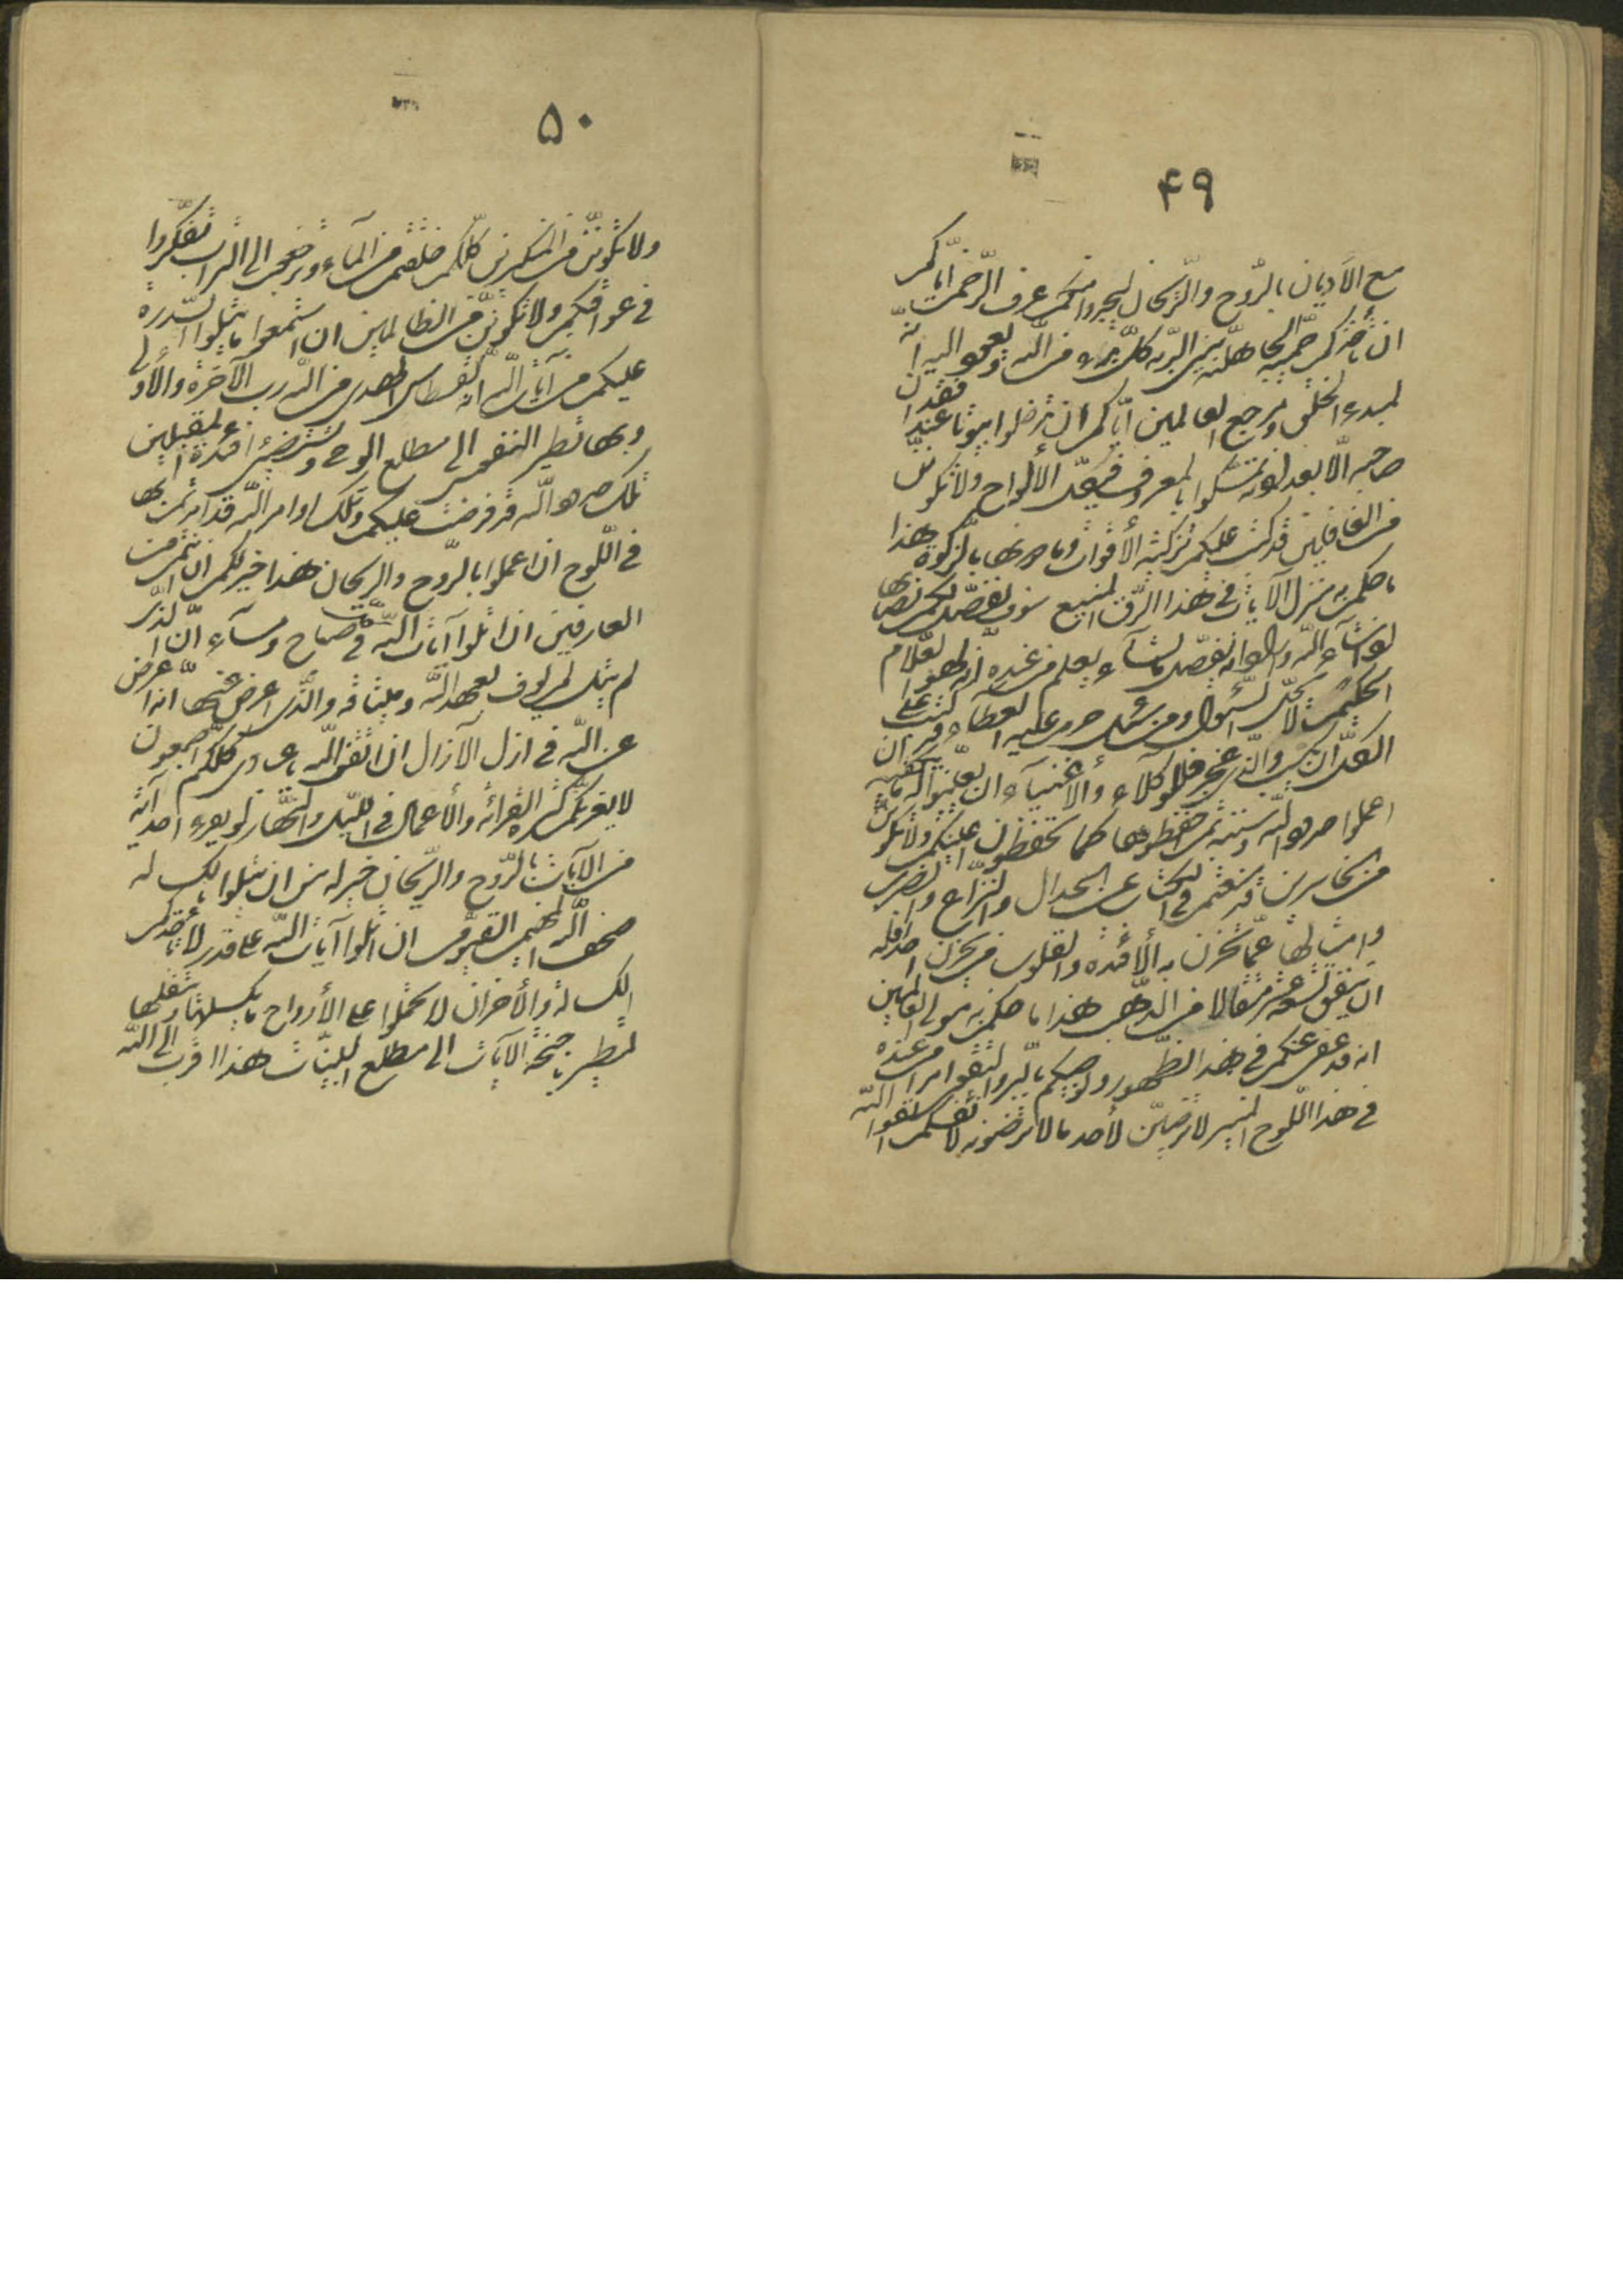 ۴۹
مع الأديان بالرّوح والرّيحان ليجدوا منكم عرف الرّحمن ايّاكم
ان تأخذكم حميّة الجاهليّة بين البريّة كلّ بدء من اللّه ويعود اليه انّه
لمبدء الخلق ومرجع العالمين ايّاكم أن تدخلوا بيوتا عند فقدان
صاحبه الّا بعد اذنه تمسّكوا بالمعروف في كلّ الأحوال ولا تكوننّ
من الغافلين قد كتب عليكم تزكية الأقوات وما دونها بالزّكوة هذا
ما حكم به منزل الآيات في هذا الرّقّ المنيع سوف نفصّل لكم نصابها
اذا شآء اللّه واراد انّه يفصّل ما يشآء بعلم من عنده انّه لهو العلّام
الحكيم لا يحلّ السّئوال ومن سئل حرم عليه العطآء قد كتب على
الكلّ ان يكسب والّذي عجز فللوكلآء والأغنيآء ان يعيّنوا له ما يكفيه
اعملوا حدود اللّه وسننه ثمّ احفظوها كما تحفظون اعينكم ولا تكوننّ
من الخاسرين قد منعتم في الكتاب عن الجدال والنّزاع والضّرب
وامثالها عمّا تحزن به الأفئدة والقلوب من يحزن احدا فله
ان ينفق تسعة عشر مثقالا من الذّهب هذا ما حكم به مولى العالمين
انّه قد عفى عنكم في هذا الظّهور ويوصيكم بالبرّ والتّقوى امرا من عنده
في هذا اللّوح المنير لا ترضينّ لأحد ما لا ترضونه لأنفسكم اتّقوا اللّه
۵۰
ولا تكوننّ من المتكبّرين كلّكم خلقتم من المآء وترجعون الى التّراب تفكّروا
في عواقبكم ولا تكوننّ من الظّالمين ان استمعوا ما تتلوا السّدرة
عليكم من آيات اللّه انّها لقسطاس الهدى من اللّه ربّ الآخرة والأولى
وبها تطير النّفوس الى مطلع الوحي وتستضيء افئدة المقبلين
تلك حدود اللّه قد فرضت عليكم وتلك اوامر اللّه قد امرتم بها
في اللّوح ان اعملوا بالرّوح والرّيحان هذا خير لكم ان كنتم من
العارفين ان اتلوا آيات اللّه في كلّ صباح ومسآء انّ الّذي
لم يتل لم يوف بعهد اللّه وميثاقه والّذي اعرض عنها انّه اعرض
عن اللّه في ازل الآزال ان اتّقنّ اللّه يا عبادي كلّكم اجمعون
لا يغرّنّكم كثرة القرائة والأعمال في اللّيل والنّهار لو يقرء احد آية
من الآيات بالرّوح والرّيحان خير له من ان يتلوا بالكسالة
صحف اللّه المهيمن القيّوم ان اتلوا آيات اللّه على قدر لا تأخذكم
الكسالة والأحزان لا تحملوا على الأرواح ما يكسلها ويثقلها
لتطير باجنحة الآيات الى مطلع البيّنات هذا اقرب الى اللّه